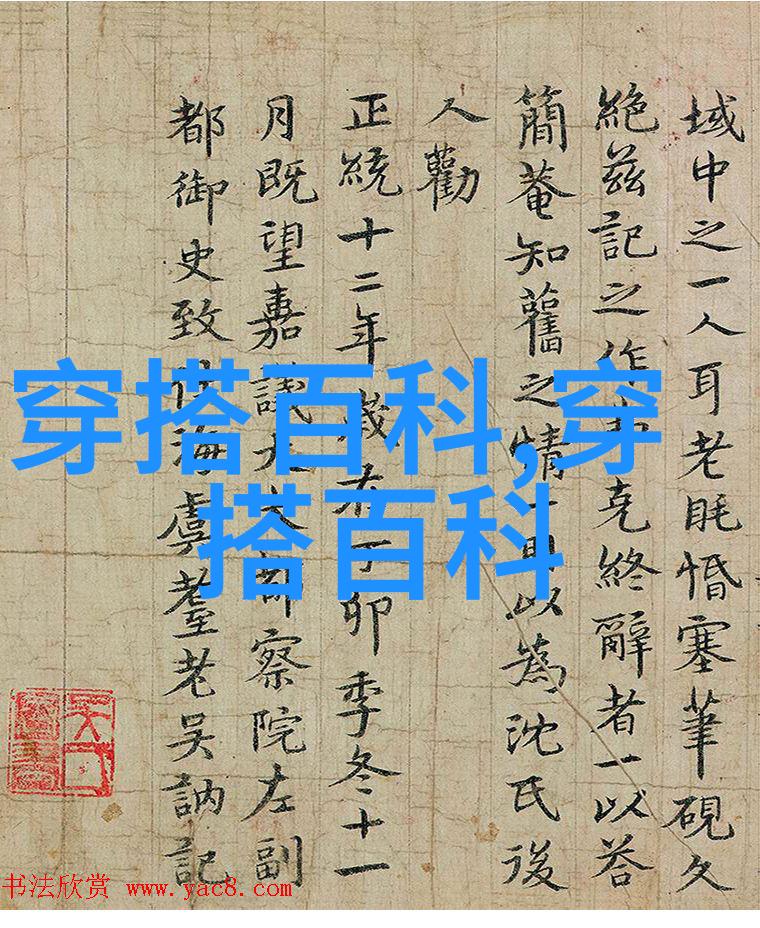 域中之一人耳老眊惛塞筆硯久
絶兹記之作克終辭者一以荅
簡菴知舊之情一以為沈氏後
人勸
正統十二年歲在丁卯季冬十一
月既望嘉議大夫都察院左副
都御史致仕海虞耋老吳訥記
穿搭百科,穿
搭百科
书法欣赏 www.yac8.com